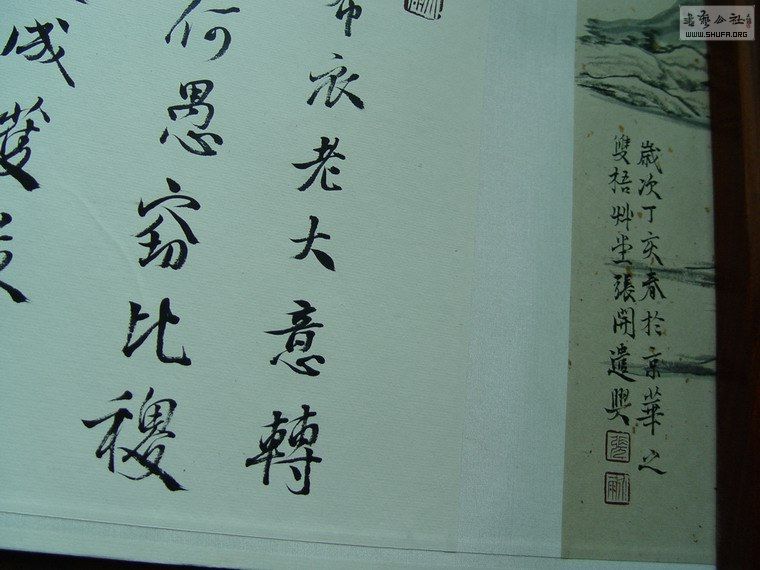 歲次丁亥春於京華之
雙梧艸堂張開遣興
布衣老大意轉
何愚竊比稷
成濩
WWW.SHUFA.ORG